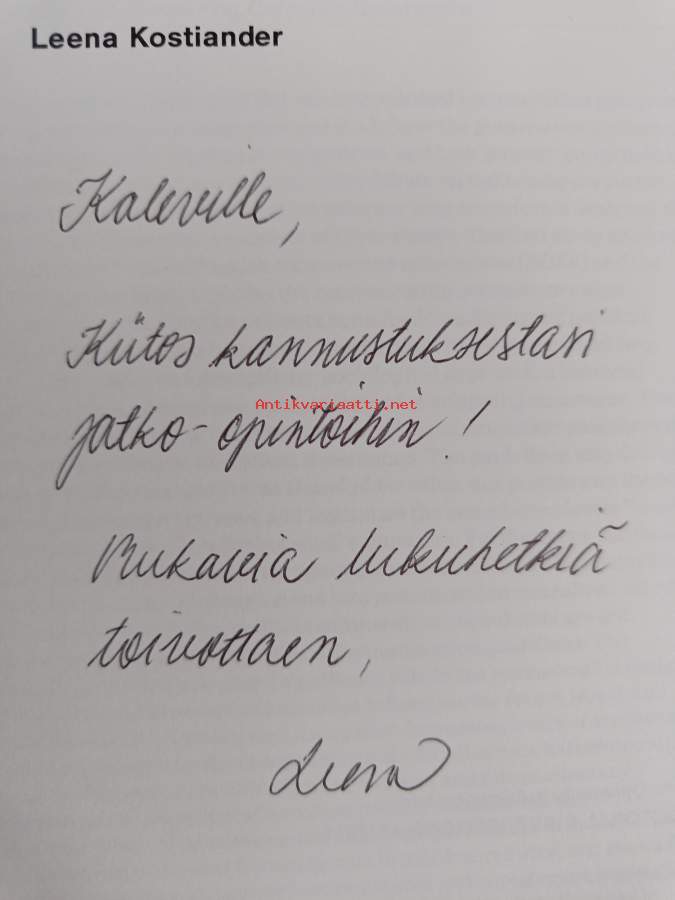 Leena Kostiander
Kaleville,
Kiitos kannustuksestasi
Antikvariaatti.net
jatko-opintoihin!
Mukavia lukuhetkiä
toivottaen,
Leena